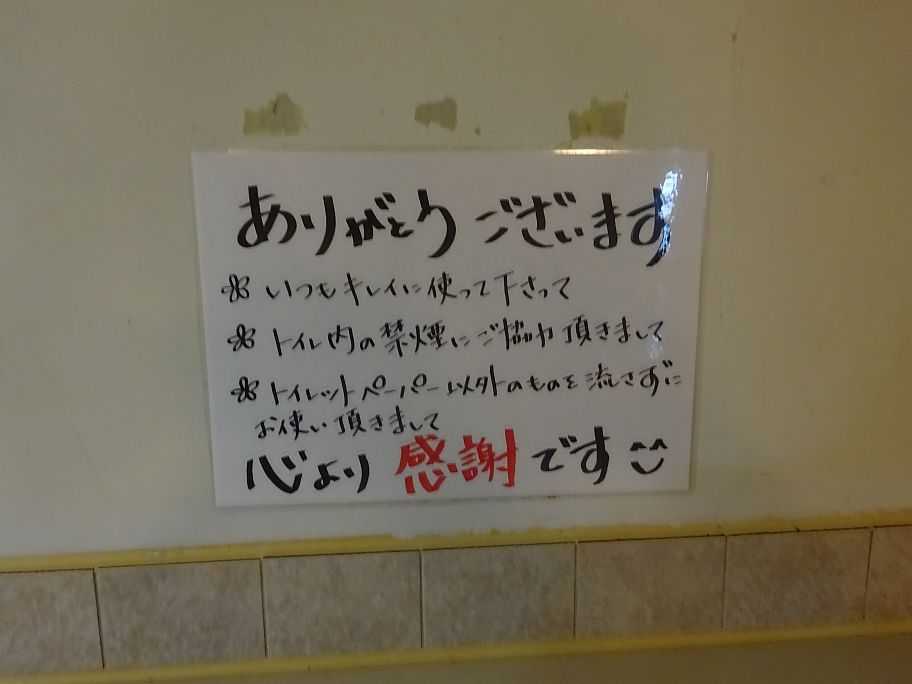 ありがとうございます
いつもキレイに使って下さって
トイレ内の禁煙にご協力頂きまして
トイレットペーパー以外のものを流さずに
お使い頂きまして
心より感謝です